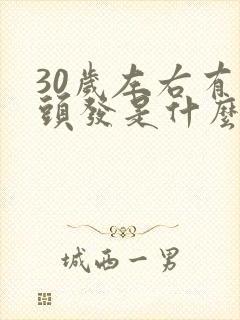 30歲左右有
頭發是什麼
城西一男